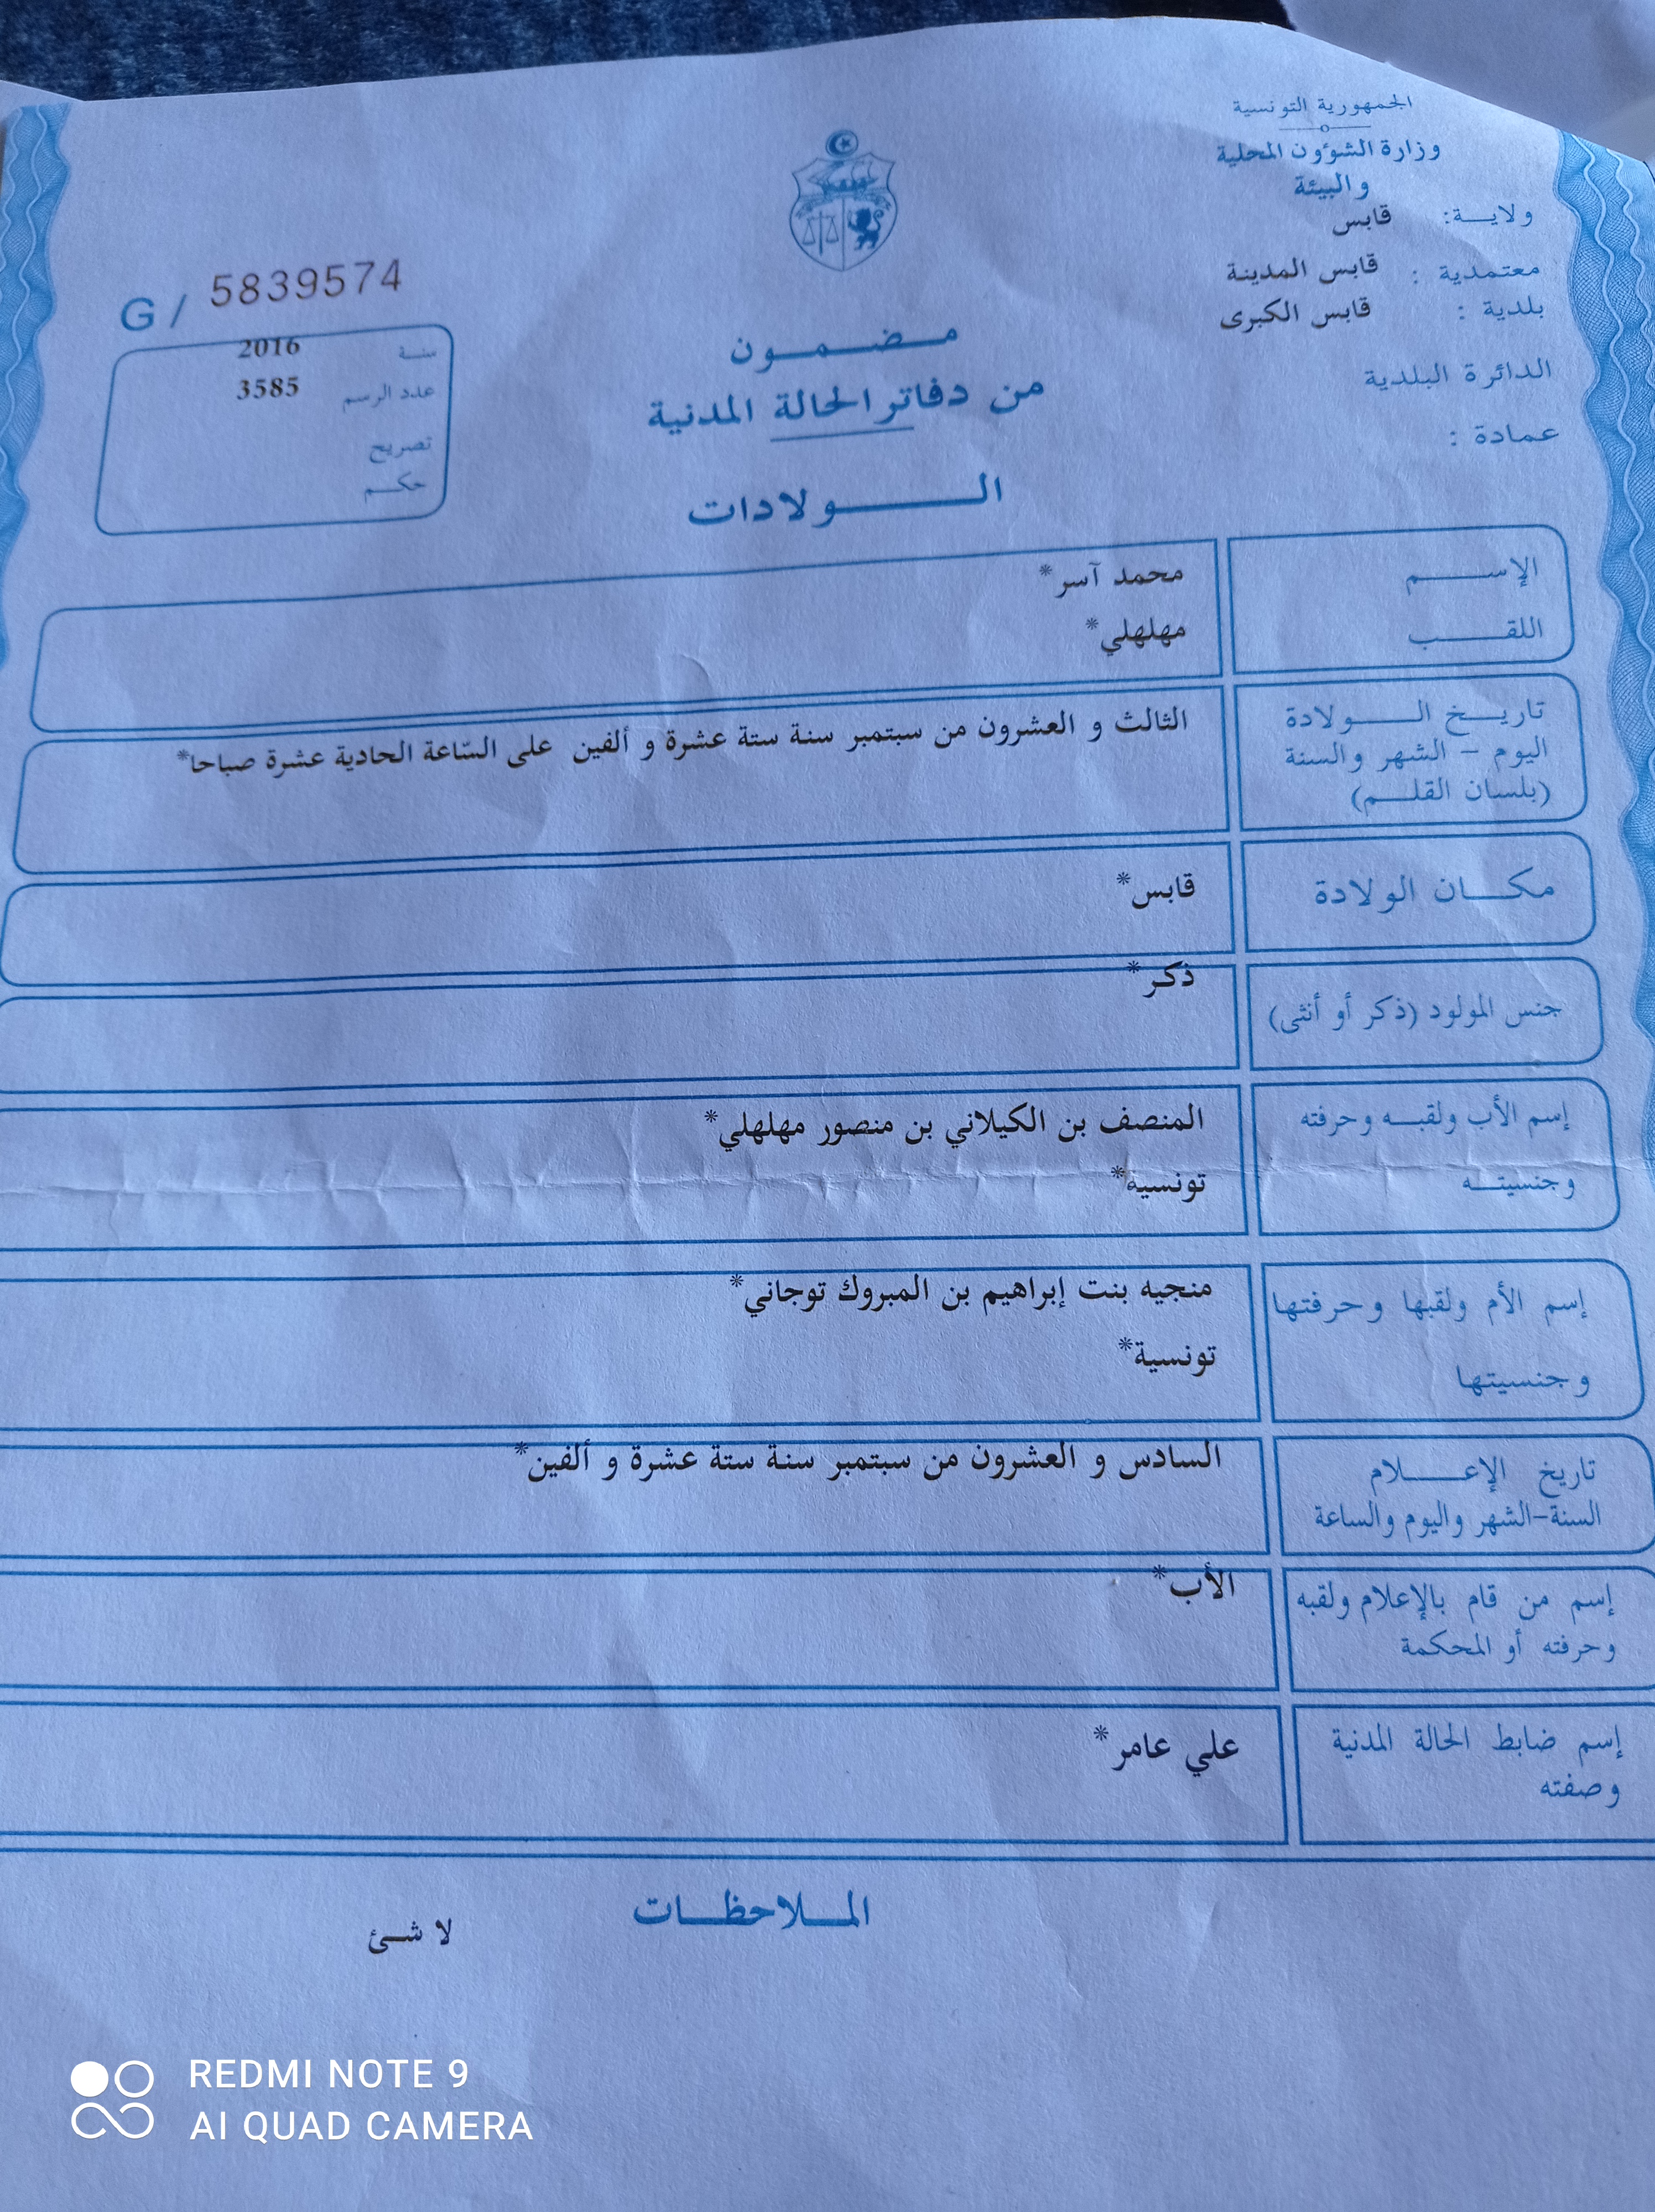 الجمهورية التونسية
وزارة الشؤون المحلية
والبيئة
ولاية: قابس
معتمدية : قابس المدينة
بلدية : قابس الكبرى
الدائرة البلدية
عمادة :
G / 5839574
سنة 2016
عدد الرسم 3585
تصريح
حكم
مضمون
من دفاتر الحالة المدنية
الولادات
الإسم محمد آسر*
اللقب مهلهلي*
تاريخ الولادة
اليوم - الشهر والسنة
(بلسان القلم)
الثالث و العشرون من سبتمبر سنة ستة عشرة و ألفين على السّاعة الحادية عشرة صباحا*
مكان الولادة قابس*
جنس المولود (ذكر أو أنثى) ذكر*
إسم الأب ولقبه وحرفته المنصف بن الكيلاني بن منصور مهلهلي*
وجنسيته تونسية*
إسم الأم ولقبها وحرفتها منجيه بنت إبراهيم بن المبروك توجاني*
وجنسيتها تونسية*
تاريخ الإعلام السادس و العشرون من سبتمبر سنة ستة عشرة و ألفين*
السنة-الشهر واليوم والساعة
إسم من قام بالإعلام ولقبه الأب*
وحرفته أو المحكمة
إسم ضابط الحالة المدنية علي عامر*
وصفته
الملاحظات
لا شئ
REDMI NOTE 9
AI QUAD CAMERA